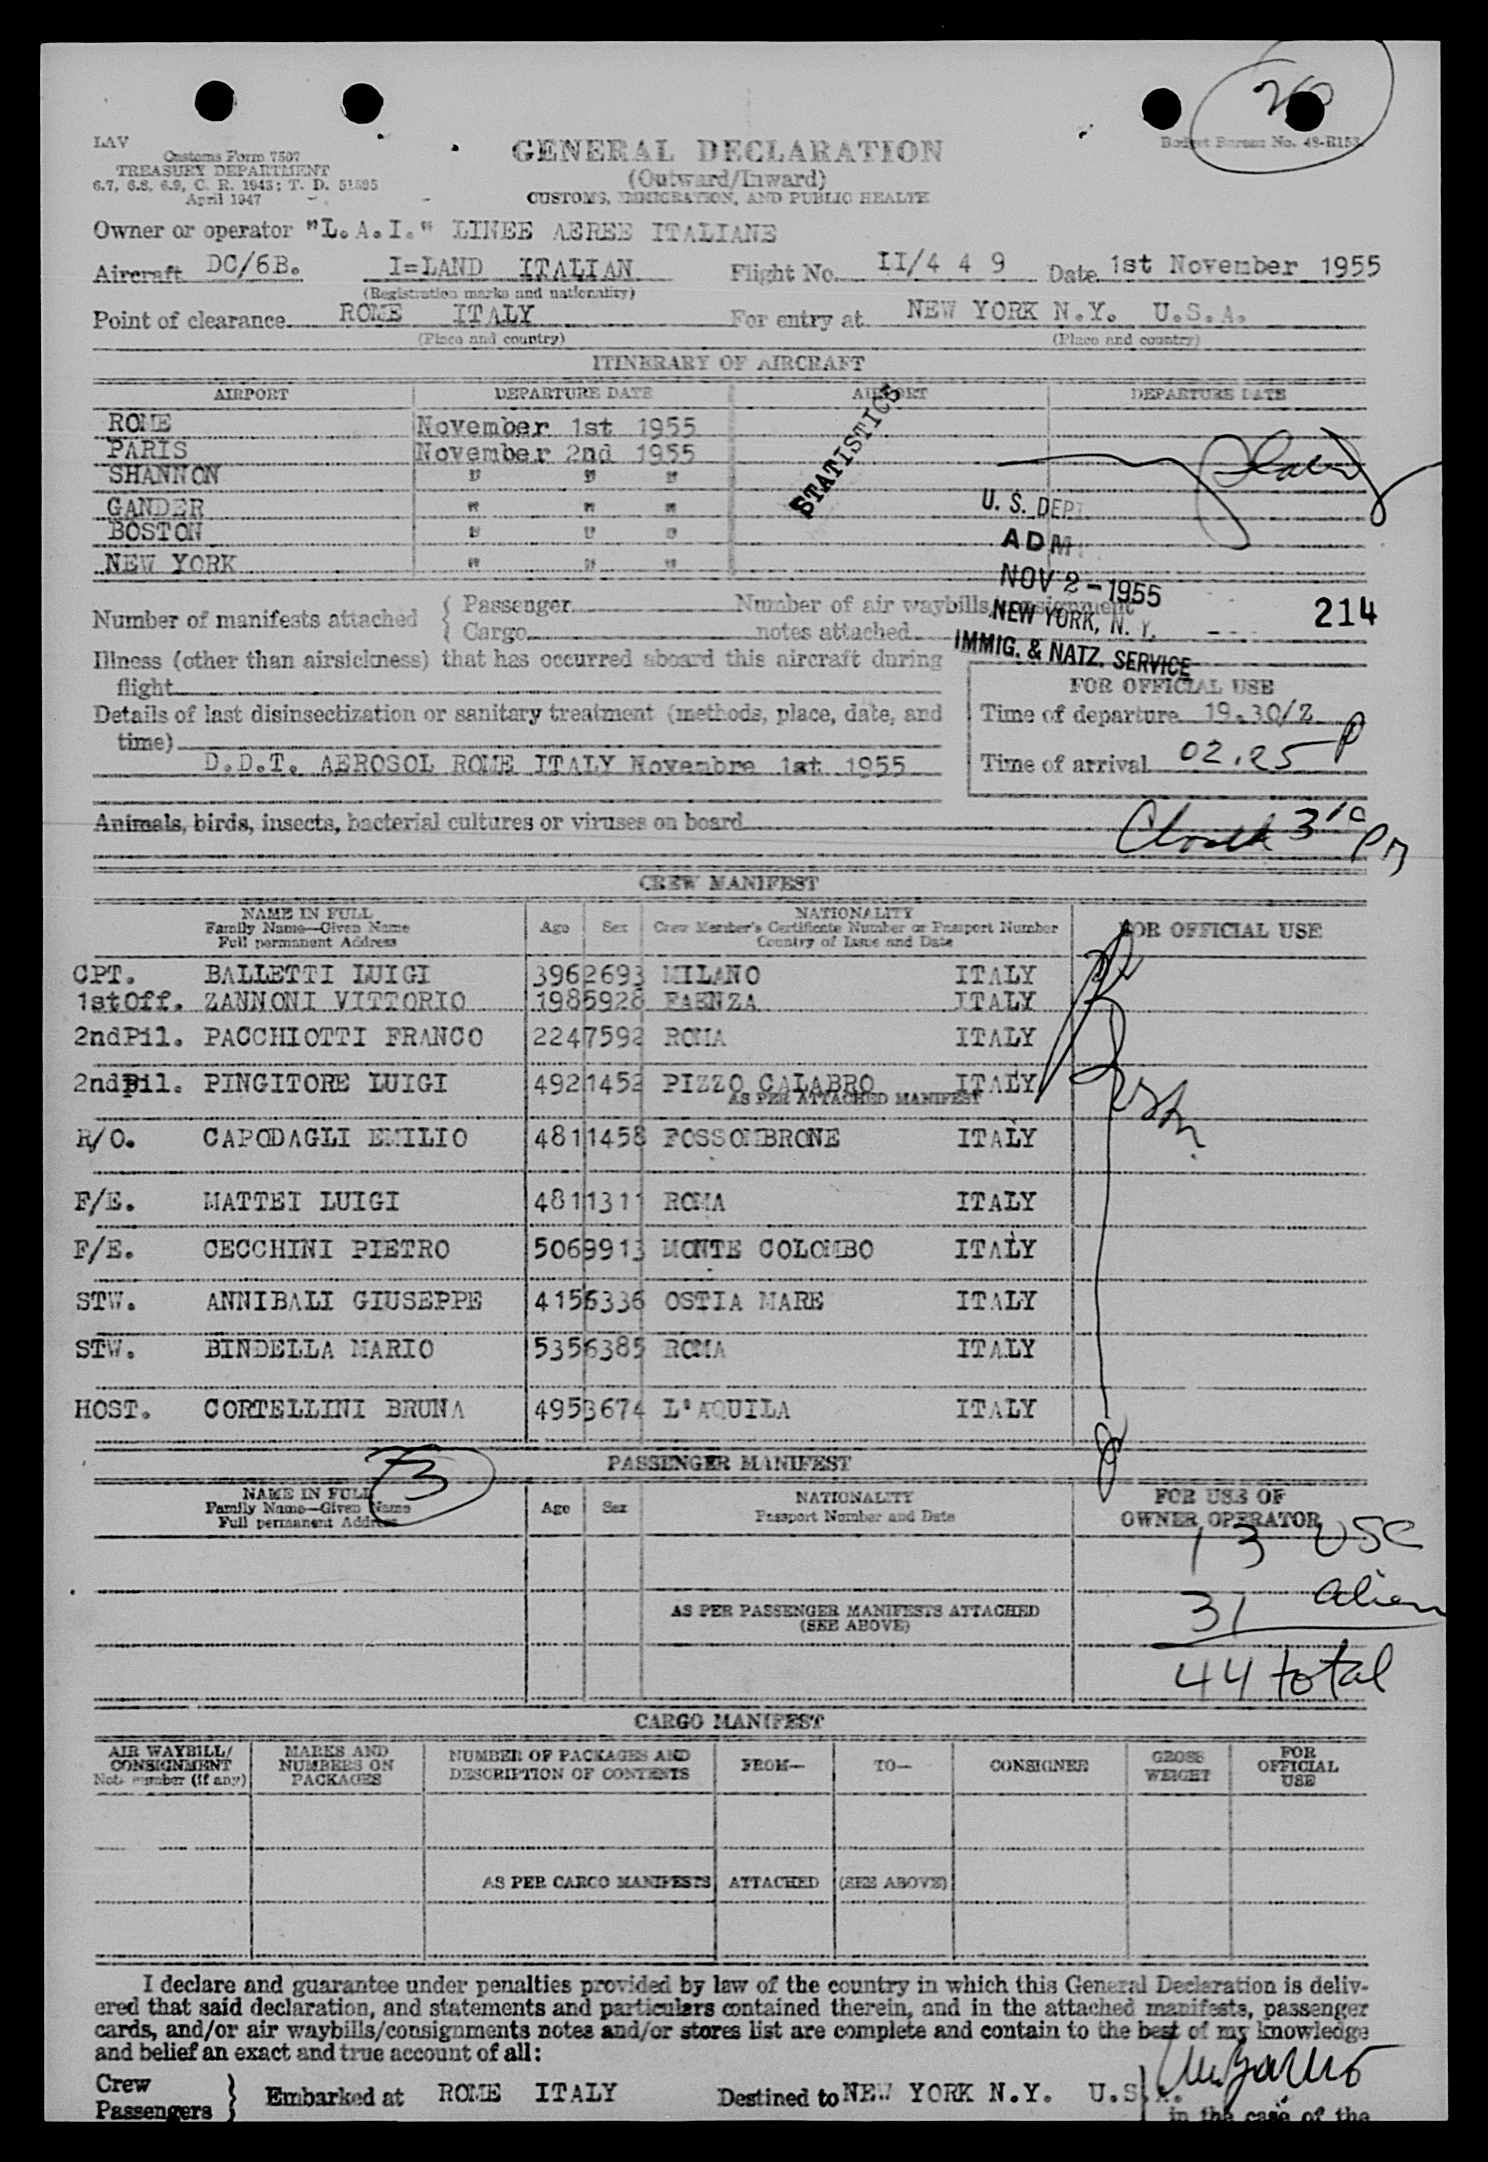 20
LAV
Customs Form 7507
TREASURY DEPARTMENT
6.7, 6.8, 6.9, C. R. 1943; T. D. 51595
April 1947
GENERAL DECLARATION
(Outward/Inward)
CUSTOMS, IMMIGRATION, AND PUBLIC HEALTH
Budget Bureau No. 48-R153.
Owner or operator "L.A.I." LINEE AEREE ITALIANE
Aircraft DC/6B. I=LAND ITALIAN Flight No. II/4 4 9 Date 1st November 1955
(Registration marks and nationality)
Point of clearance ROME ITALY For entry at NEW YORK N.Y. U.S.A.
(Place and country) (Place and country)
ITINERARY OF AIRCRAFT
AIRPORT DEPARTURE DATE AIRPORT DEPARTURE DATE
ROME November 1st 1955
PARIS November 2nd 1955
SHANNON " " "
GANDER " " "
BOSTON " " "
NEW YORK " " "
STATISTICS
U. S. DEPT
ADM
NOV 2 - 1955
NEW YORK, N. Y.
IMMIG. & NATZ. SERVICE
214
Number of manifests attached { Passenger Number of air waybills/consignment
Cargo notes attached
Illness (other than airsickness) that has occurred aboard this aircraft during
flight
Details of last disinsectization or sanitary treatment (methods, place, date, and
time)
D.D.T. AEROSOL ROME ITALY Novembre 1st 1955
FOR OFFICIAL USE
Time of departure 19.30/Z
Time of arrival 02.25 P
Animals, birds, insects, bacterial cultures or viruses on board
Closed 3 10 PM
CREW MANIFEST
NAME IN FULL
Family Name—Given Name
Full permanent Address
Age Sex
NATIONALITY
Crew Member's Certificate Number or Passport Number
Country of Issue and Date
FOR OFFICIAL USE
CPT. BALLETTI LUIGI 3962693 MILANO ITALY
1stOff. ZANNONI VITTORIO 1985928 FAENZA ITALY
2ndPil. PACCHIOTTI FRANCO 2247592 ROMA ITALY
2ndPil. PINGITORE LUIGI 4921452 PIZZO CALABRO ITALY
AS PER ATTACHED MANIFEST
R/O. CAPODAGLI EMILIO 4811458 FOSSOMBRONE ITALY
F/E. MATTEI LUIGI 4811311 ROMA ITALY
F/E. CECCHINI PIETRO 5069913 MONTE COLOMBO ITALY
STW. ANNIBALI GIUSEPPE 4156336 OSTIA MARE ITALY
STW. BINDELLA MARIO 5356385 ROMA ITALY
HOST. CORTELLINI BRUNA 4953674 L'AQUILA ITALY
PASSENGER MANIFEST
73
NAME IN FULL
Family Name—Given Name
Full permanent Address
Age Sex
NATIONALITY
Passport Number and Date
FOR USE OF
OWNER OPERATOR
13 USC
31 alien
44 total
AS PER PASSENGER MANIFESTS ATTACHED
(SEE ABOVE)
CARGO MANIFEST
AIR WAYBILL/
CONSIGNMENT
Note number (if any)
MARKS AND
NUMBERS ON
PACKAGES
NUMBER OF PACKAGES AND
DESCRIPTION OF CONTENTS
FROM—
TO—
CONSIGNEE
GROSS
WEIGHT
FOR
OFFICIAL
USE
AS PER CARGO MANIFESTS ATTACHED (SEE ABOVE)
I declare and guarantee under penalties provided by law of the country in which this General Declaration is deliv-
ered that said declaration, and statements and particulars contained therein, and in the attached manifests, passenger
cards, and/or air waybills/consignments notes and/or stores list are complete and contain to the best of my knowledge
and belief an exact and true account of all:
Crew
Passengers } Embarked at ROME ITALY Destined to NEW YORK N.Y. U.S.A.
in the case of the